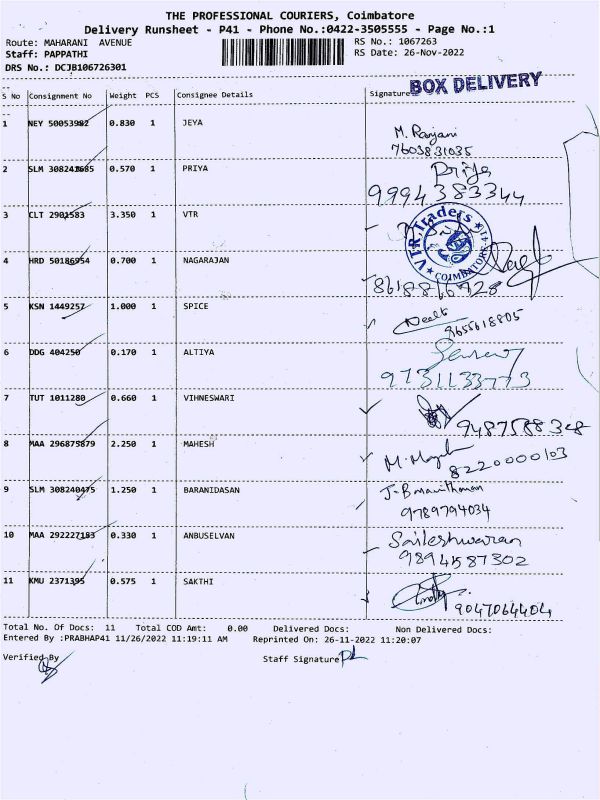 THE PROFESSIONAL COURIERS, Coimbatore
Delivery Runsheet - P41 - Phone No.:0422-3505555 - Page No.:1
Route: MAHARANI AVENUE
RS No.: 1067263
Staff: PAPPATHI
RS Date: 26-Nov-2022
DRS No.: DCJB106726301
BOX DELIVERY
S No Consignment No Weight PCS Consignee Details Signature
1 NEY 50053982 0.830 1 JEYA
M. Ranjani
7603831035
2 SLM 308242685 0.570 1 PRIYA
Priya
9994383344
3 CLT 2901583 3.350 1 VTR
VTR Traders
COIMBATORE
4 HRD 50186954 0.700 1 NAGARAJAN
5 KSN 1449257 1.000 1 SPICE
9655618805
6 DDG 404250 0.170 1 ALTIYA
9731133773
7 TUT 1011280 0.660 1 VIHNESWARI
9487588348
8 MAA 296875879 2.250 1 MAHESH
8220000103
9 SLM 308240475 1.250 1 BARANIDASAN
9789794034
10 MAA 292227183 0.330 1 ANBUSELVAN
Saileshwaran
9894587302
11 KMU 2371395 0.575 1 SAKTHI
9047064404
Total No. Of Docs: 11 Total COD Amt: 0.00 Delivered Docs: Non Delivered Docs:
Entered By :PRABHAP41 11/26/2022 11:19:11 AM Reprinted On: 26-11-2022 11:20:07
Verified By
Staff Signature